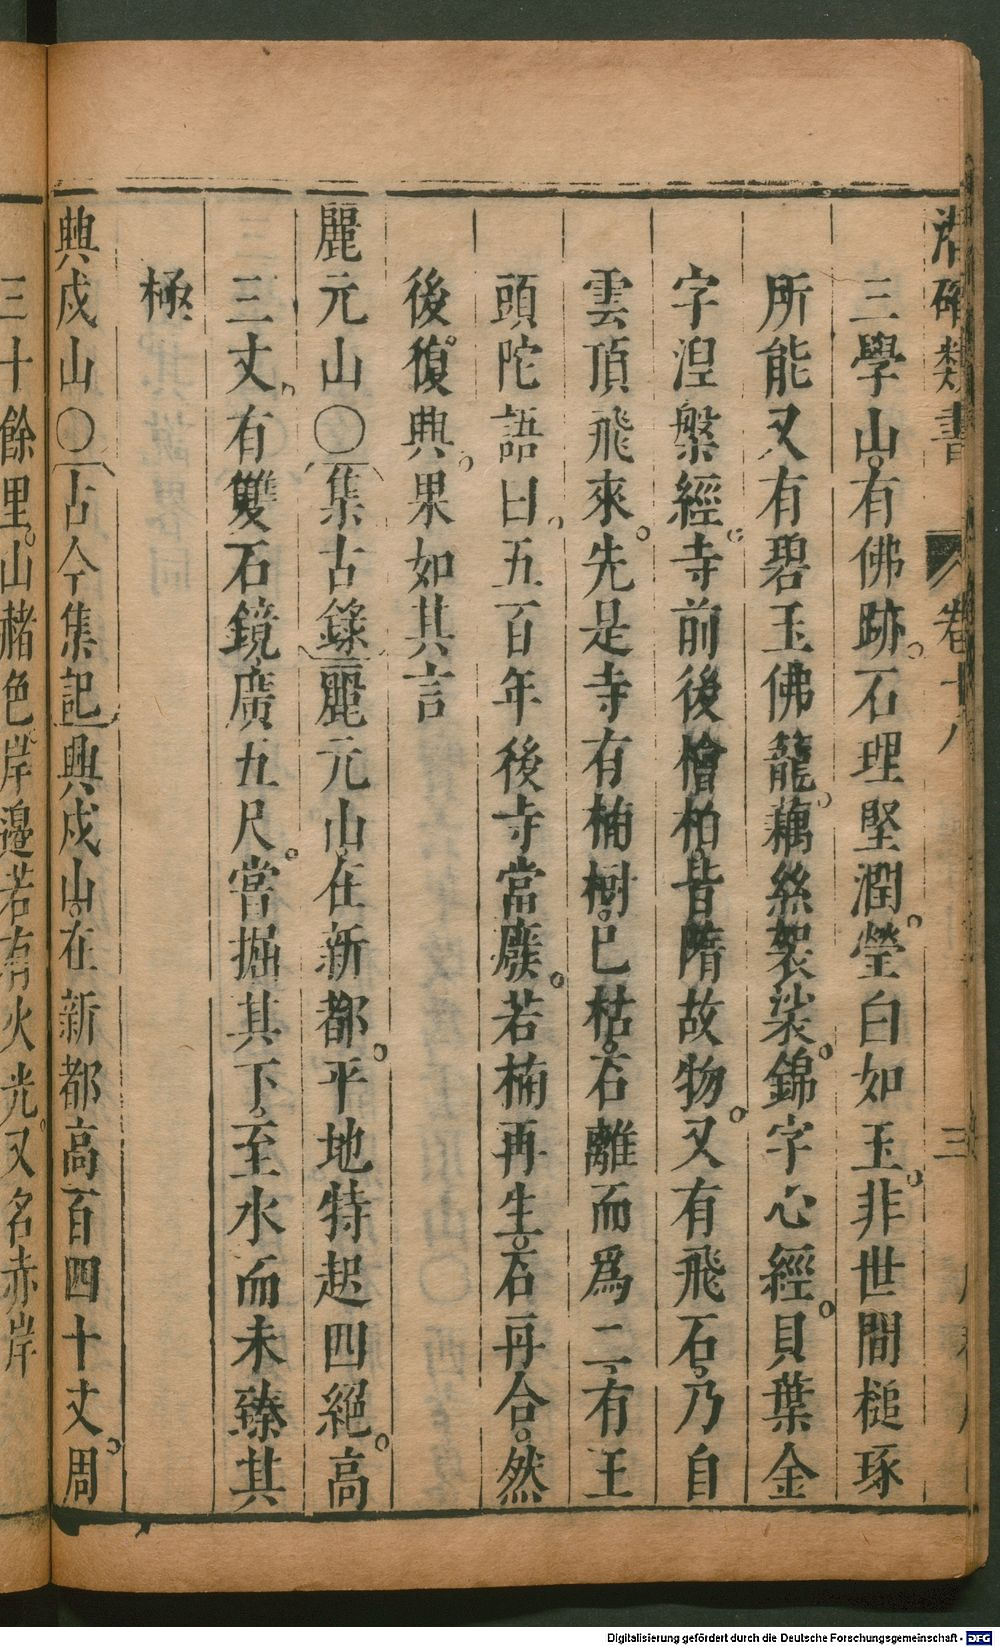 潛確類書 卷十八 三
三學山。有佛跡。石理堅潤。瑩白如玉。非世間槌琢
所能又有碧玉佛龍。藕絲袈裟。錦字心經。貝葉金
字涅槃經。寺前後檜柏。昔隋故物。又有飛石。乃自
雲頂飛來。先是寺有楠樹。已枯。石離而爲二、有王
頭陀語曰、五百年後寺當廢。若楠再生。石再合。然
後復興。果如其言
麗元山〇集古錄麗元山在新都。平地特起四絕。高
三丈、有雙石鏡、廣五尺。當掘其下、至水而未臻其
極
興戍山〇古今集記興戍山。在新都高百四十丈。周
三十餘里。山赭色岸邊若有火光。又名赤岸
Digitalisierung gefördert durch die Deutsche Forschungsgemeinschaft - DFG